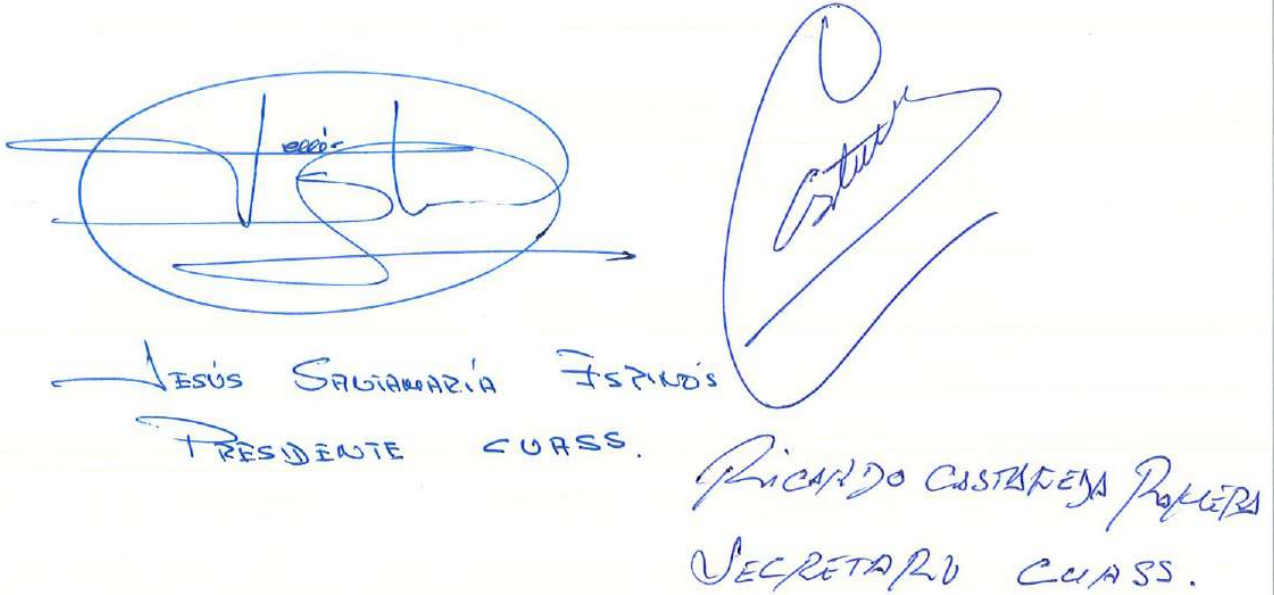 JESÚS SANTAMARÍA ESPINÓS
PRESIDENTE CUASS.
RICARDO CASTAÑEDA ROMERA
SECRETARIO CUASS.